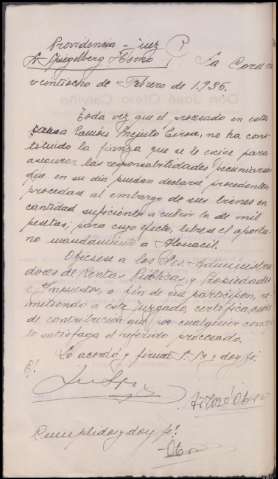 Providencia - Juez
Sr. Spiegelberg Horno
La Coruña
veintiocho de Febrero de 1.936.
Toda vez que el procesado en esta
causa no ha cons
tituido la fianza que se le exige para
asegurar las responsabilidades pecuniarias
que en su día puedan declararse procedentes
procédase al embargo de sus bienes en
cantidad suficiente a cubrir la de mil
pesetas, para cuyo efecto, líbrese el oportu
no mandamiento a Alguacil.
Ofíciese a los Sres. Administra
dores de Rentas Públicas y Propiedades
e Impuestos, a fin de que participen, re
mitiendo a este juzgado, certificación
de contribución que por cualquier concep
to satisfaga el referido procesado.
Lo acordó y firma S. Sª y doy fe.
Cumplido, y doy fe.